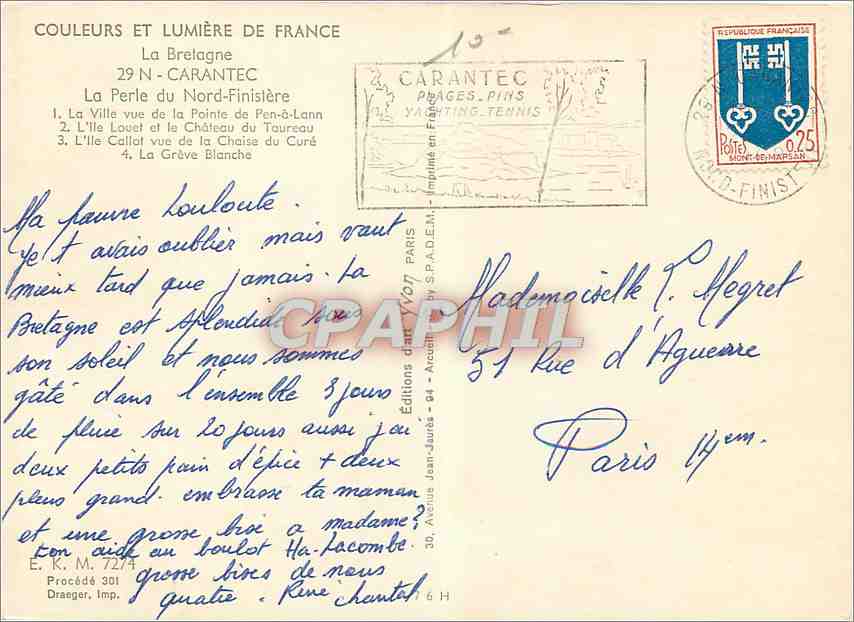 COULEURS ET LUMIÈRE DE FRANCE
La Bretagne
29 N - CARANTEC
La Perle du Nord-Finistère
1. La Ville vue de la Pointe de Pen-à-Lann
2. L'Ile Louet et le Château du Taureau
3. L'Ile Callot vue de la Chaise du Curé
4. La Grève Blanche
10-
CARANTEC
PLAGES_PINS
YACHTING_TENNIS
REPUBLIQUE FRANÇAISE
POSTES 0,25
MONT-DE-MARSAN
NORD-FINISTE
Ma pauvre Louloute.
Je t avais oublier mais vaut
mieux tard que jamais. La
Bretagne est splendide sous
son soleil et nous sommes
gâté dans l'ensemble 3 jours
de pluie sur 20 jours aussi j'ai
deux petits pain d'épice + deux
plus grand. embrasse ta maman
et une grosse bise a madame?
ton aide au boulot Ha-Lacombe.
grosse bises de nous
quatre. René Chantal
E. K. M. 7274
Procédé 301
Draeger, Imp.
Éditions d'art YVON PARIS
30, Avenue Jean-Jaurès - 94 - Arcueil by S.P.A.D.E.M. - Imprimé en France
76 H
CPAPHIL
Mademoiselle Megret
51 Rue d'Aguerre
Paris 14em.